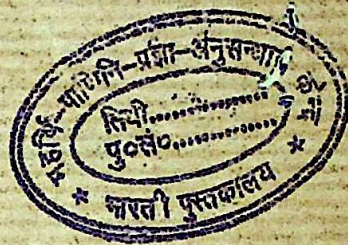 महर्षि-पाणिनि-प्रज्ञा-अनुसन्धान
तिथी..................
पु०सं०..................
* भारती पुस्तकालय *